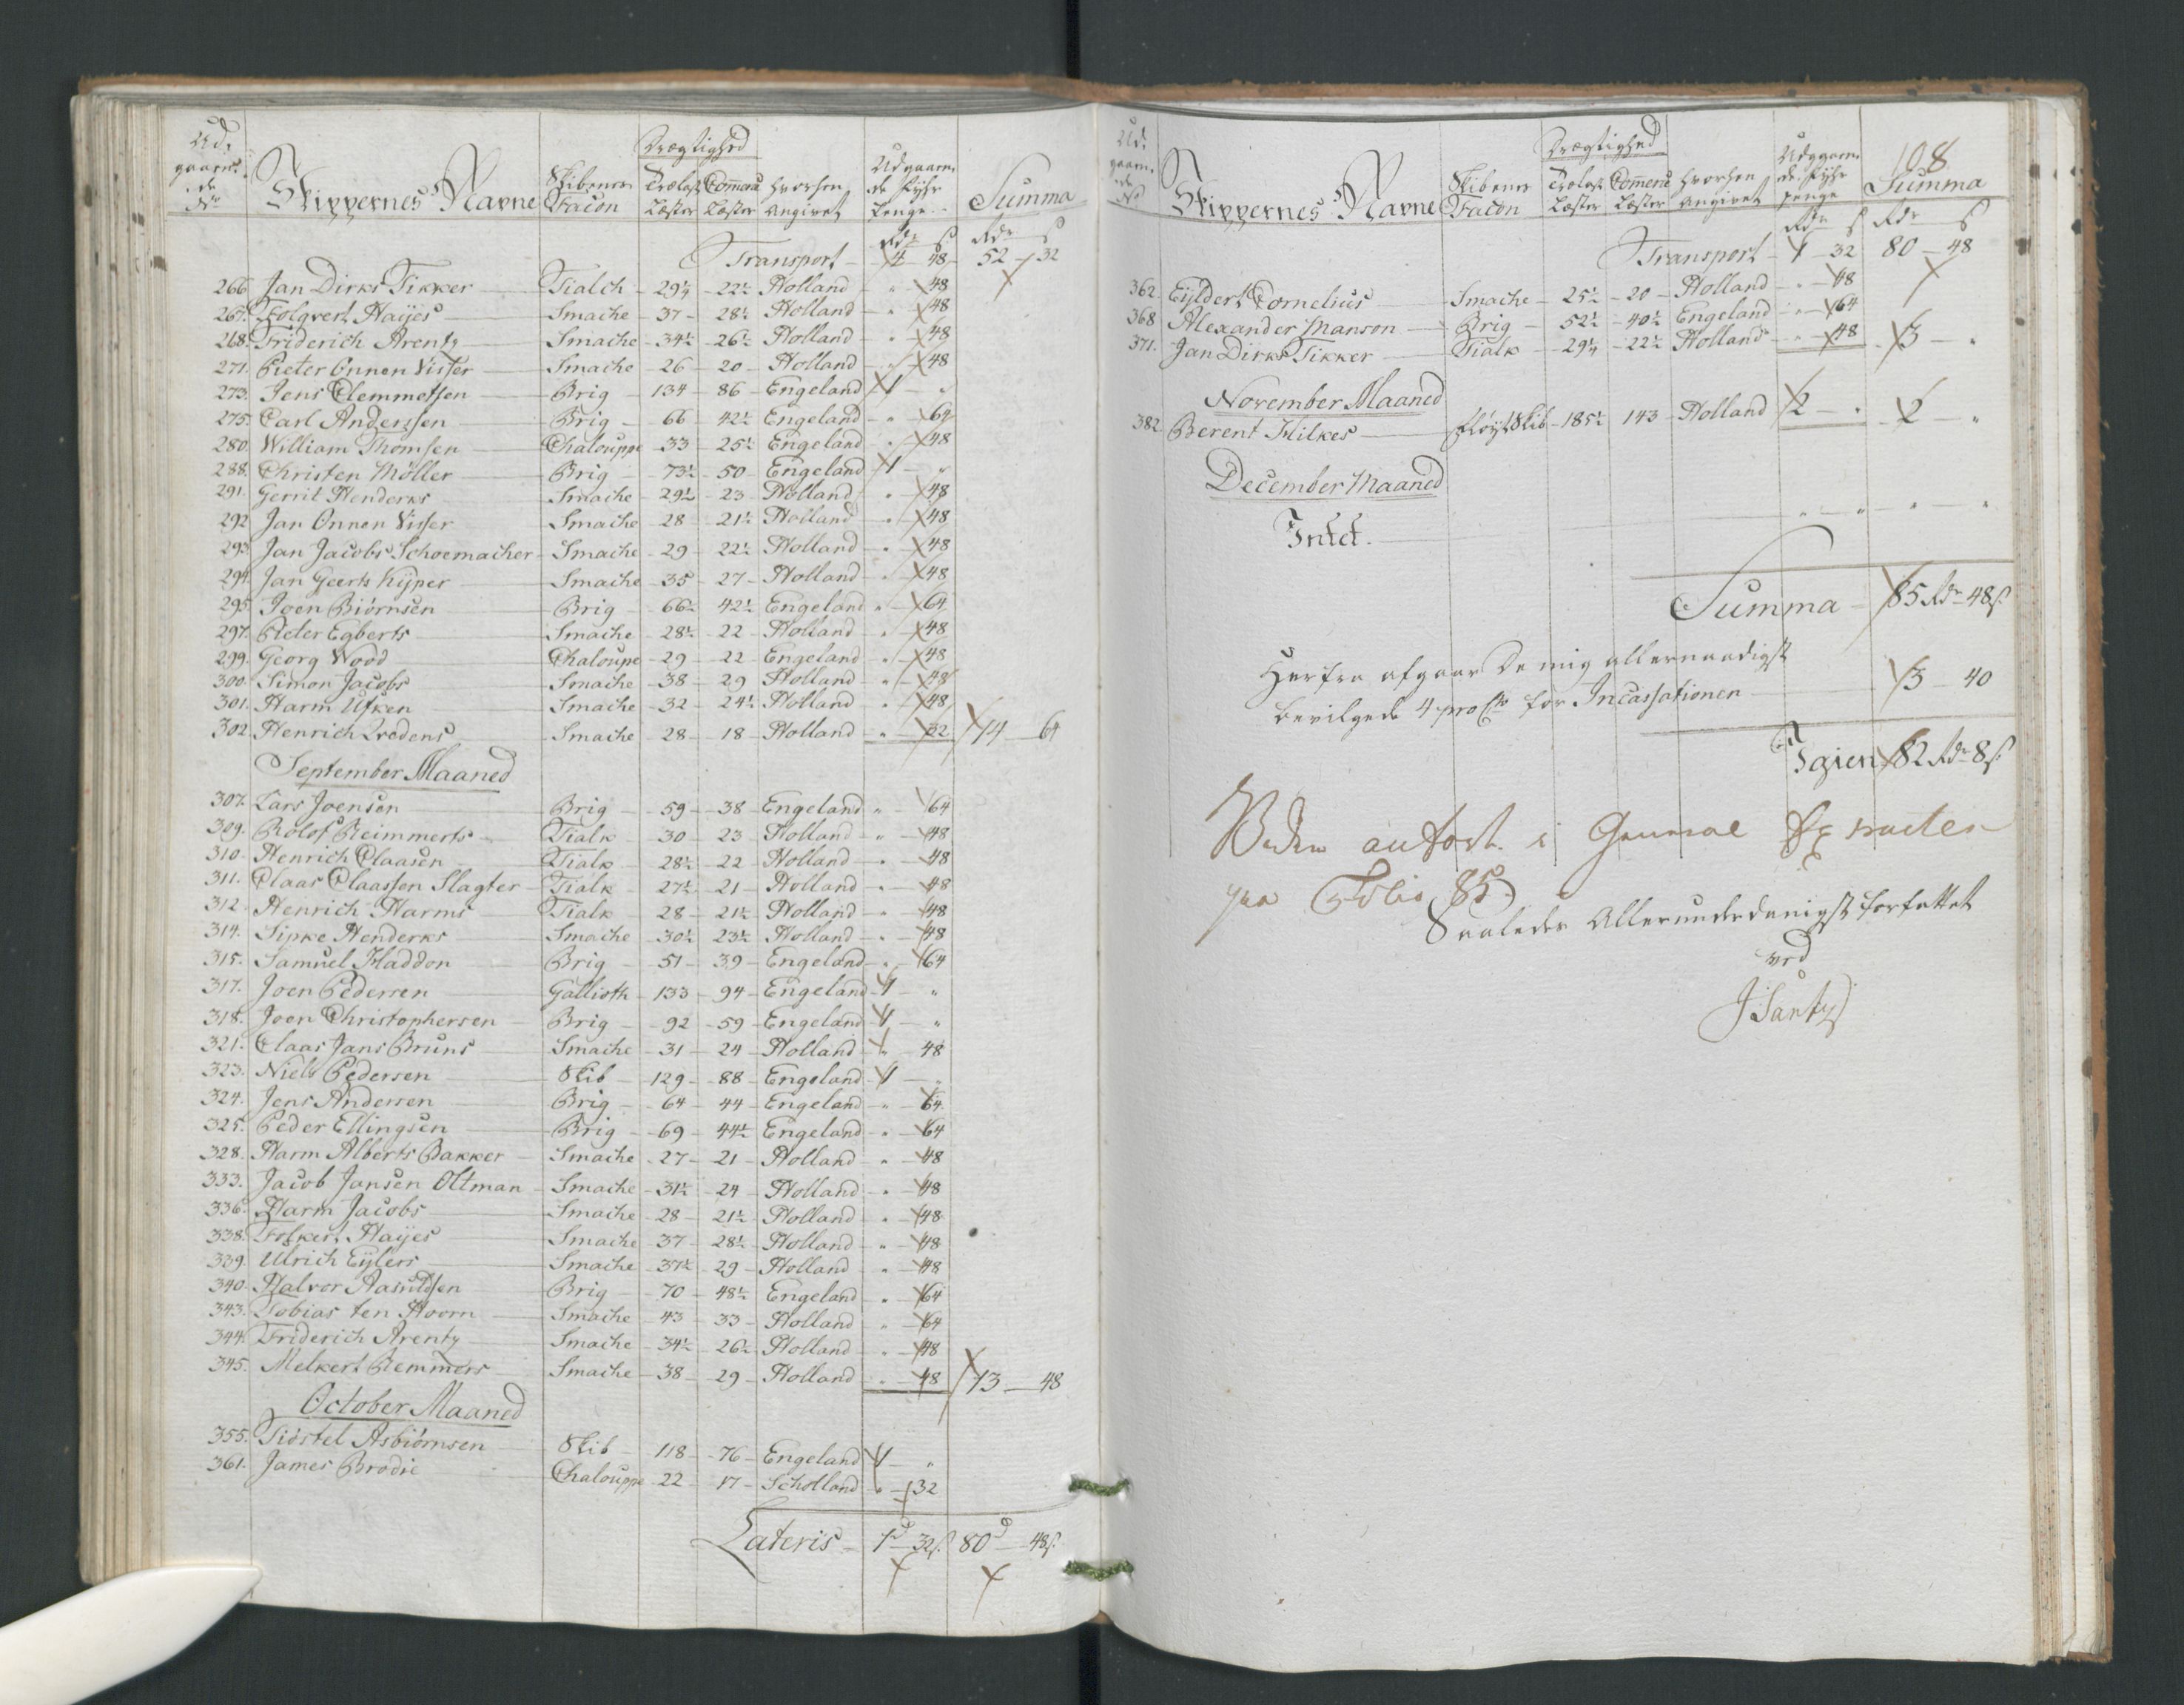 Ud-
gaaen-
de
No
Skippernes Navne
Skibenes
Facon
Drægtighed
Trælast
Læster
Commerce
Læster
hvorhen
angivet
Udgaaen-
de Fyhr
Penge
Summa
Rdr ß Rdr ß
Transport 4 - 48 - 52 - 32
266 Jan Dirks Tikker Tialch - 29¼ - 22½ Holland " 48
267. Folgvert Hayes Smache - 37 - 28½ Holland " 48
268. Friderich Arentz Smache - 34½ - 26½ Holland " 48
271. Pieter Onnen Visser Smache - 26 - 20 - Holland " 48
273. Jens Clemmetsen Brig - 134 - 86 - Engeland 1 - "
275. Carl Anderssen Brig - 66 - 42½ Engeland " 64
280. William Thomsen Chalouppe - 33 - 25½ Engeland " 48
288. Christen Möller Brig - 73½ - 50 Engeland 1 - "
291. Gerrit Henderks Smache - 29½ - 23 Holland " 48
292 Jan Onnen Visser Smache - 28 - 21½ Holland " 48
293. Jan Jacobs Schoemacher - Smache - 29 - 22½ Holland " 48
294. Jan Geerts Kyper Smache - 35 - 27 - Holland " 48
295. Joen Biörnsen Brig - 66½ 42½ Engeland " 64
297. Pieter Egberts Smache - 28½ - 22 - Holland " 48
299. Georg Wood Chaloupe - 29 - 22 - Engeland " 48
300. Simon Jacobs Smache - 38 - 29 Holland " 48
301. Harm Ufken Smache - 32 - 24½ Holland " 48
302. Henrich Vredens Smache - 28 - 18 - Holland " 32 14 - 64
September Maaned
307. Lars Joensen Brig - 59 - 38 - Engeland " 64
309. Rolof Reimmerts Tialk - 30 - 23 - Holland " 48
310. Henrich Claasen Tialk - 28½ - 22 Holland " 48
311. Claas Claassen Slagter Tialk - 27½ - 21 - Holland " 48
312. Henrich Harms Tialk - 28 - 21½ Holland " 48
314. Sipke Henderks Smache - 30½ 23½ Holland " 48
315. Samuel Haddon Brig - 51 - 39 - Engeland " 64
317. Joen Pedersen Gallioth - 133 - 94 - Engeland 1 - "
318. Joen Christophersen Brig - 92 - 59 - Engeland 1 - "
321. Claas Jans Bruns Smache - 31 - 24 - Holland " 48
323. Niels Pedersen Skib - 129 - 88 - Engeland 1 - "
324. Jens Andersen Brig - 64 - 44 - Engeland " 64
325. Peder Ellingsen Brig - 69 - 44½ Engeland " 64
328. Harm Alberts Bakker Smache - 27 - 21 - Holland " 48
333. Jacob Jansen Oltman - Smache - 31½ - 24 - Holland " 48
336. Harm Jacobs Smache - 28 - 21½ Holland " 48
338. Folkert Hayes Smache - 37 - 28½ Holland " 48
339. Ulrich Eylers Smache - 37½ - 29 - Holland " 48
340. Halvor Aasuldsen Brig - 70 - 48½ Engeland " 64
343. Tobias ten Hoorn Smache - 43 - 33 - Holland " 64
344. Friderich Arentz Smache - 34½ - 26½ Holland " 48
345. Melkert Remmers Smache - 38 - 29 - Holland " 48 13 - 48
October Maaned
355. Tiöstel Asbiörnsen Skib - 118 - 76 - Engeland 1 - "
361. James Brodie Chalouppe - 22 - 17 - Schotland " 32
Lateris - 1d 32ß. 80d 48ß.
108
Ud-
gaaen-
de
No
Skippernes Navne
Skibenes
Facon
Drægtighed
Trælast
Læster
Commerce
Læster
hvorhen
angivet
Udgaaen-
de Fyhr
penge
Summa
Rdr ß Rdr ß
Transport - 1 - 32 80 - 48
362. Eyldert Cornelius Smache - 25½ - 20 - Holland " 48
368 Alexander Manson Brig - 52½ - 40½ Engeland " 64
371. Jan Dirks Tikker Tialk - 29¼ - 22½ Holland " 48 3 - "
November Maaned
382 Berent Hilkes Fløyt Skib - 185½ 143 - Holland 2 - " 2 - "
December Maaned
Intet. " - " - " - "
Summa - 85 Rdr 48ß.
Herfra afgaar De mig allernaadigst
bevilgede 4 pro Cto for Incassationen 3 - 40
Igien 82 Rdr 8ß.
Videre anført i General Extracten
paa Folio 85.
Saaledes Allerunderdanigst forfattet
ved